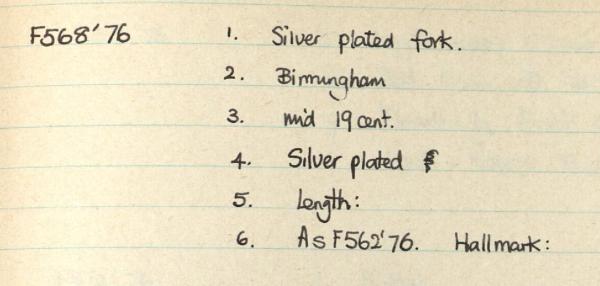 F568'76 1. Silver plated fork.
2. Birmingham
3. mid 19 cent.
4. Silver plated
5. Length:
6. As F562'76. Hallmark: